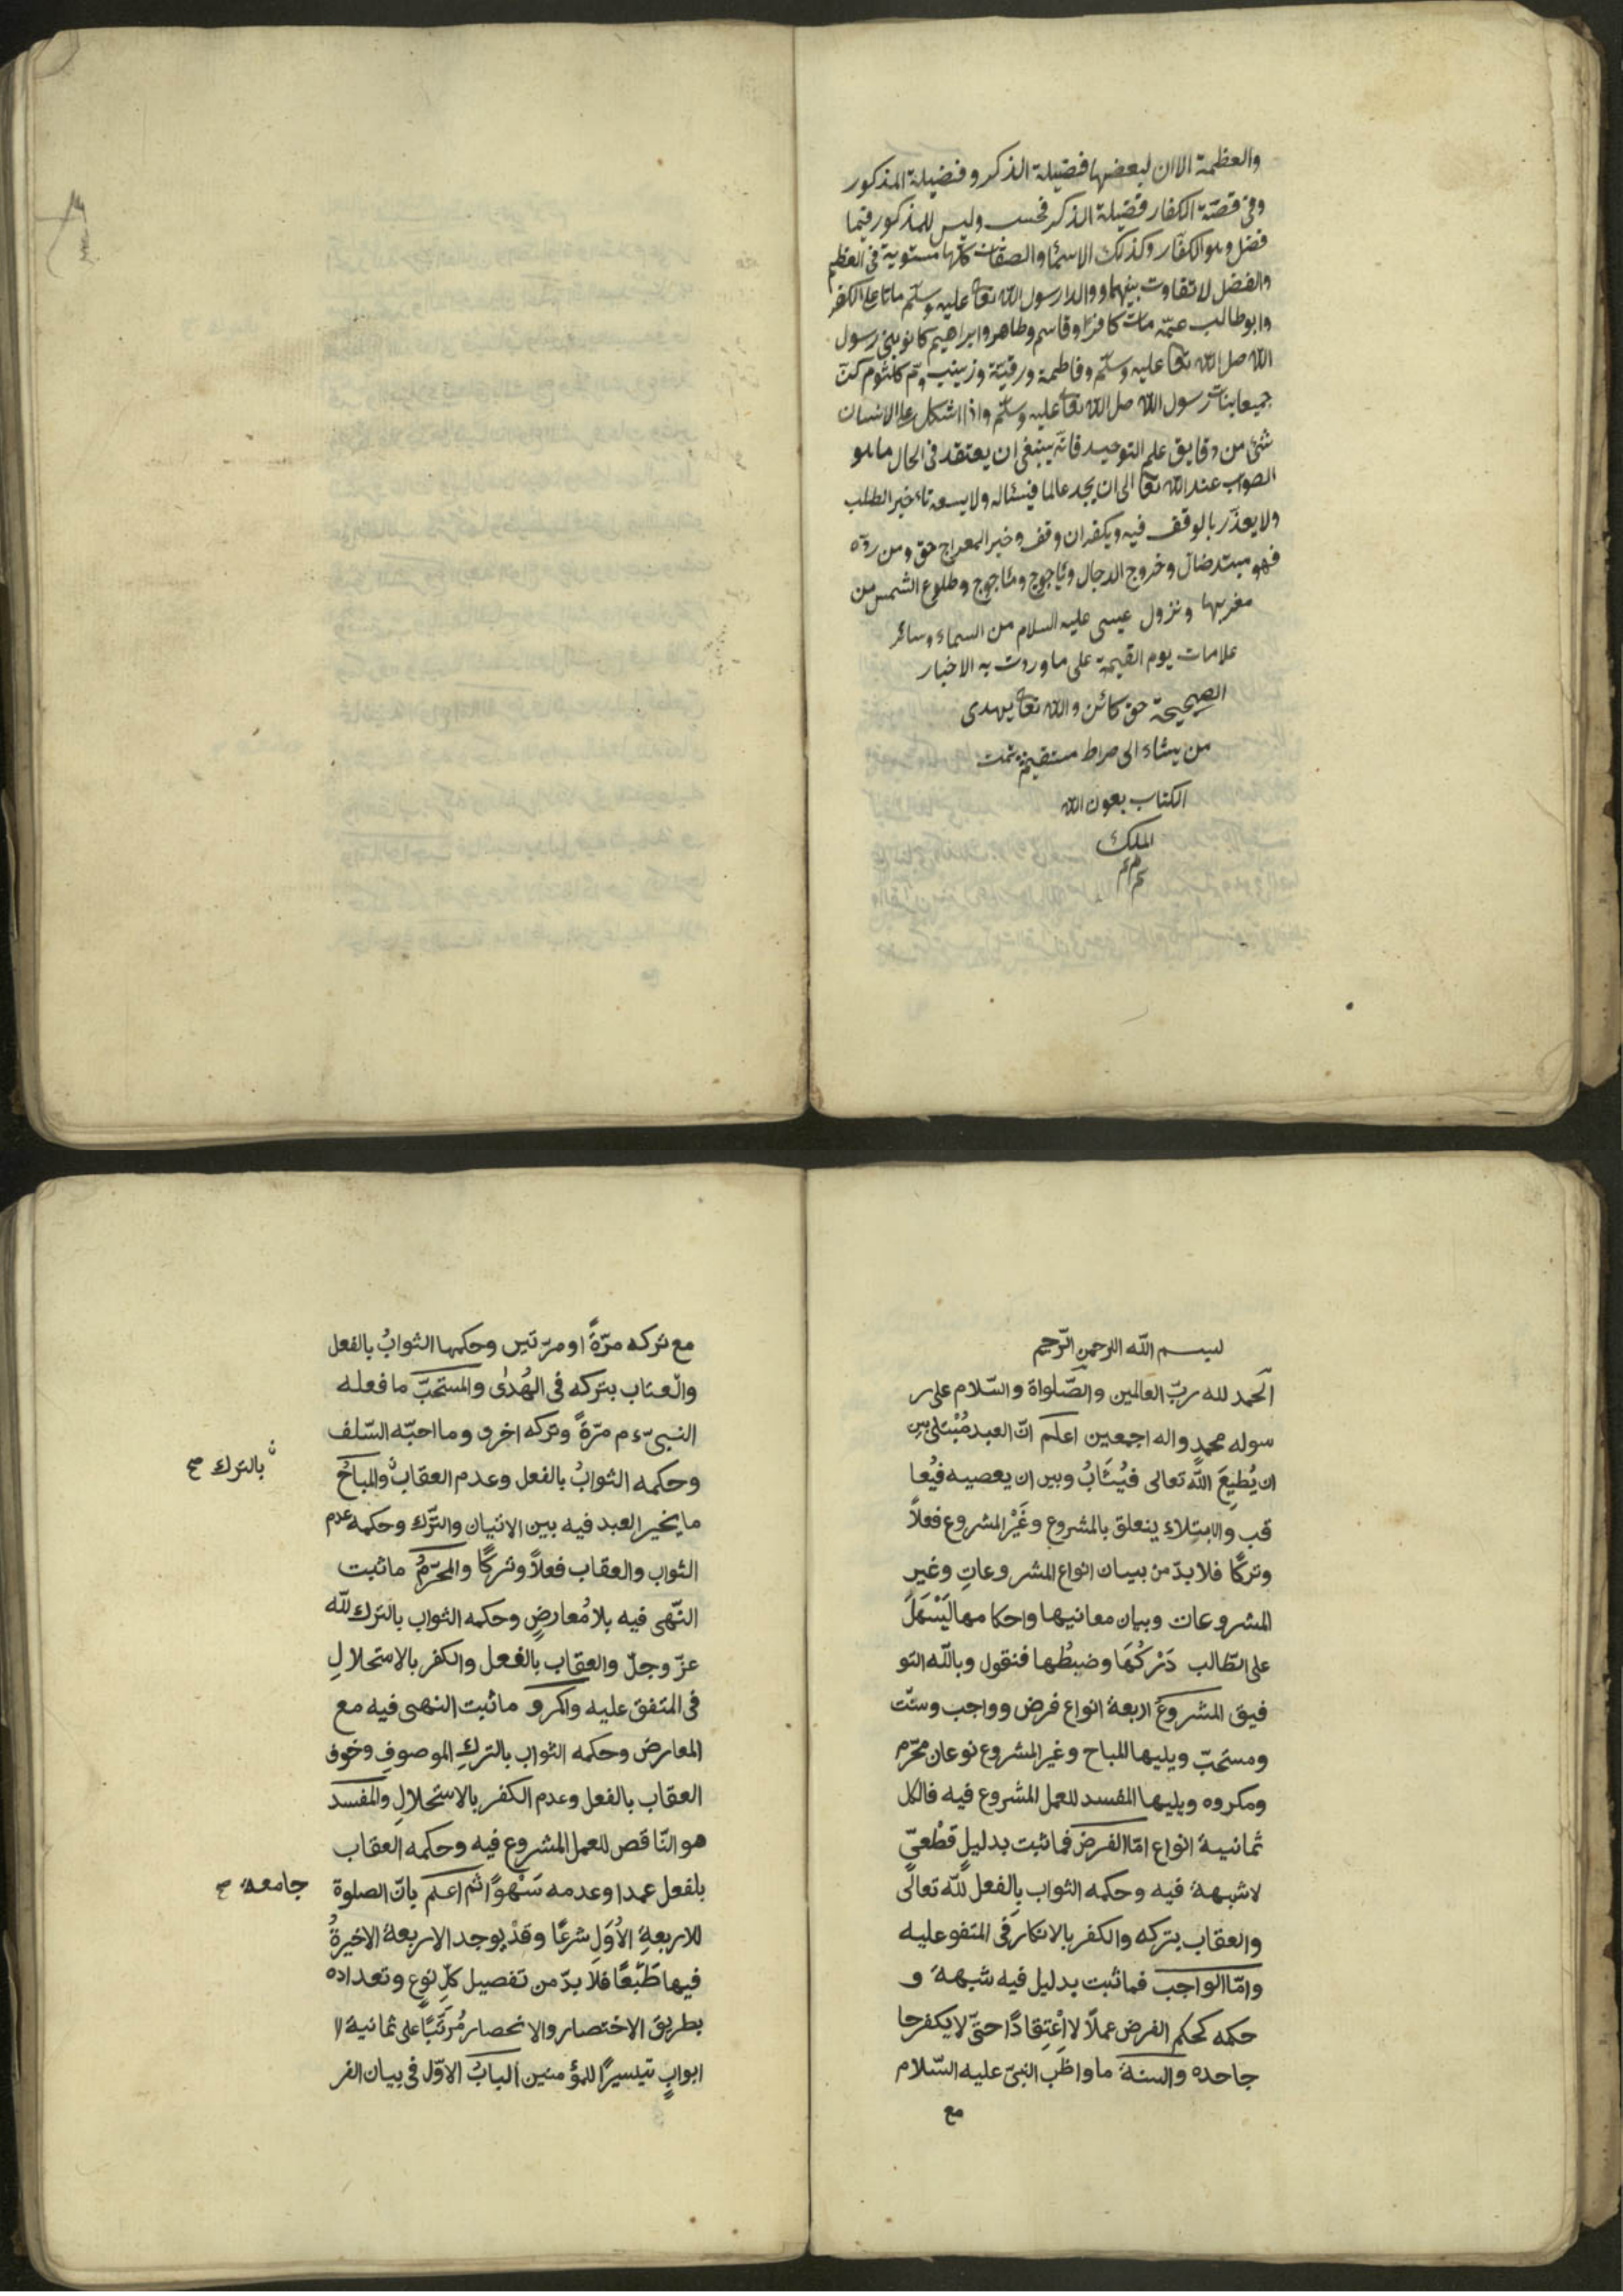 والعظمة الا ان لبعضها فضيلة الذكر وفضيلة المذكور
وفى قصّة الكفار فضيلة الذكر فحسب وليس للمذكور فيها
فضل وهو الكفار وكذلك الاسماء والصفات كلها مستوية فى العظم
والفضل لا تفاوت بينهما ووالدا رسول الله تعا عليه وسلّم ماتا على الكفر
وابو طالب عمّه مات كافرا وقاسم وطاهر وابراهيم كانو بنى رسول
الله صلى الله تعا عليه وسلّم وفاطمة ورقيّة وزينب وام كلثوم كنّ
جميعا بنات رسول الله صلى الله تعا عليه وسلّم واذا اشكل على الانسان
شئ من دقايق علم التوحيد فانّه ينبغى ان يعتقد فى الحال ما هو
الصواب عند الله تعا الى ان يجد عالما فيسئاله ولا يسعه تاءخير الطلب
ولا يعذر بالوقف فيه ويكفر ان وقف وخبر المعراج حق ومن ردّه
فهو مبتد ضال وخروج الدجال ويأجوج ومأجوج وطلوع الشمس من
مغربها ونزول عيسى عليه السلام من السماء وسائر
علامات يوم القيمة على ما وردت به الاخبار
الصحيحة حق كائن والله تعا يهدى
من يشاء الى صراط مستقيم تمت
الكتاب بعون الله
الملك
بسم الله الرحمن الرّحيم
الحمد لله ربّ العالمين والصّلواة والسّلام على ر
سوله محمد واله اجمعين اعلم انّ العبد مُبْتلى بين
ان يُطيعَ اللّه تعالى فيُثَابُ وبين ان يعصيه فيُعا
قب والابتلاء يتعلق بالمشروع وغَيْر المشروع فعلاً
وتركًا فلا بدّ من بيان انواع المشروعاتِ وغير
المشروعات وبيان معانيها واحكامها ليَسْهَلَ
على الطّالب دَرْكُهَا وضبطُها فنقول وباللّه التو
فيق المشروعَ اربعة انواع فرض وواجب وسنّت
ومستحبّ ويليها المباح وغير المشروع نوعان محرّم
ومكروه ويليها المفسد للعمل المشروع فيه فالكل
ثمانية انواع امّا الفرض فما ثبت بدليلٍ قطْعىّ
لا شبهة فيه وحكمه الثواب بالفعل للّه تعالى
والعقاب بتركه والكفر بالانكار فى المتفو عليه
وامّا الواجب فما ثبت بدليل فيه شبهة و
حكمه كحكم الفرض عملاً لا اعْتِقادًا حتّى لا يكفر جا
جاحده والسنة ما واظب النبىّ عليه السّلام
مع
مع تركه مرّةً او مرّتين وحكمها الثوابُ بالفعل
والعتاب بتركه فى الهُدٰى والمستحبّ ما فعله
النبىّ ءم مرّةً وتركه اخرى وما احبّه السّلف
وحكمه الثوابُ بالفعل وعدم العقاب والمباحُ
بالترك صح
ما يخير العبد فيه بين الاتيان والتّرك وحكمه عدم
الثواب والعقاب فعلاً وتركًا والمحرّمُ ما ثبت
النّهى فيه بلا مُعارضٍ وحكمه الثواب بالترك للّه
عزّ وجلّ والعقاب بالفعل والكفر بالاستحلالِ
فى المتفق عليه والمكرو ما ثبت النهى فيه مع
المعارض وحكمه الثواب بالتركِ الموصوفِ وخوف
العقاب بالفعل وعدم الكفر بالاستحلالِ والمفسد
هو النّاقص للعمل المشروع فيه وحكمه العقاب
بلفعل عمدا وعدمه سَهْوًا ثم اعلم بانّ الصلوة
جامعة صح
للاربعةِ الأُوَلِ شرعًا وقدْ يوجد الاربعة الاخيرةُ
فيها طَبْعًا فلا بدّ من تفصيل كلّ نوعٍ وتعداده
بطريق الاختصار والانحصار مُرَتّبًا على ثمانية ا
ابوابٍ تيسيرًا للمؤمنين البابُ الاوّل فى بيان الفر